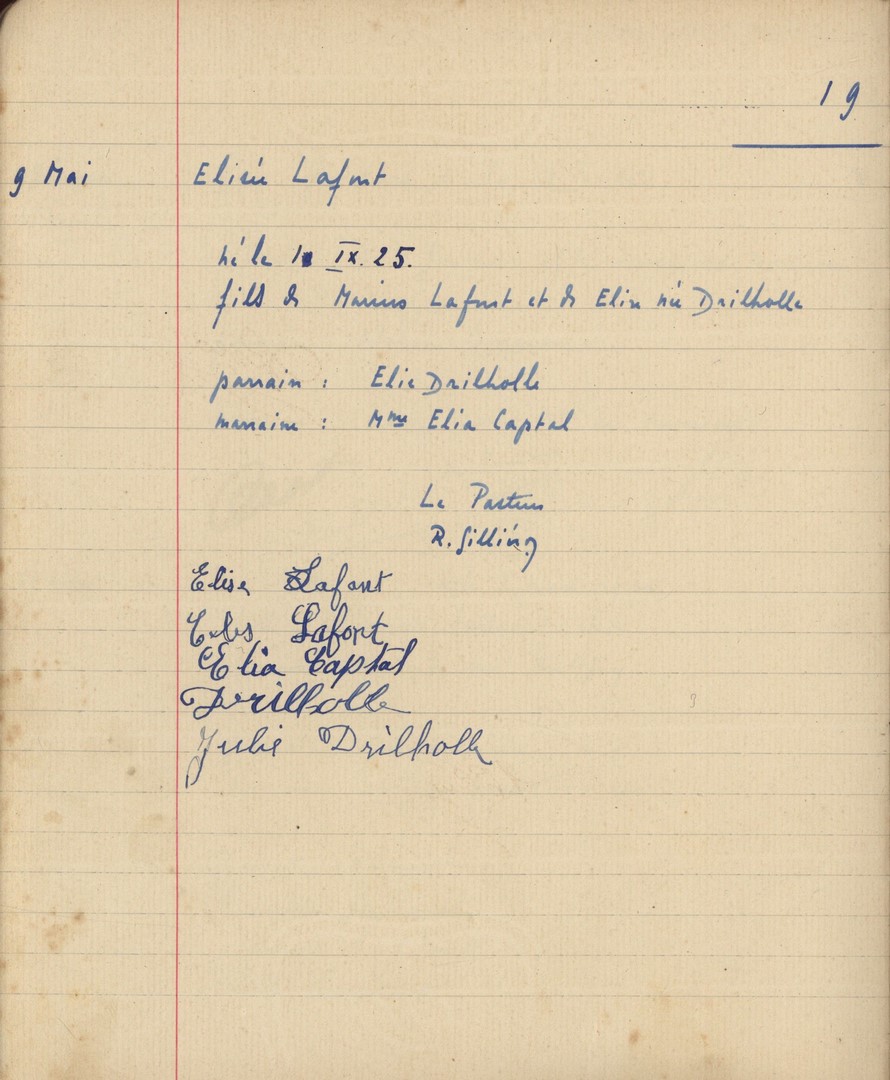 19
9 Mai Elisée Lafont
né le 1 IX. 25.
fils de Marius Lafont et de Elise née Drilholle
parrain : Elie Drilholle
marraine : Mme Elia Captal
Le Pasteur
R.
Elise Lafont
Lafont
Elia Captal
Drilholle
Julie Drilholle